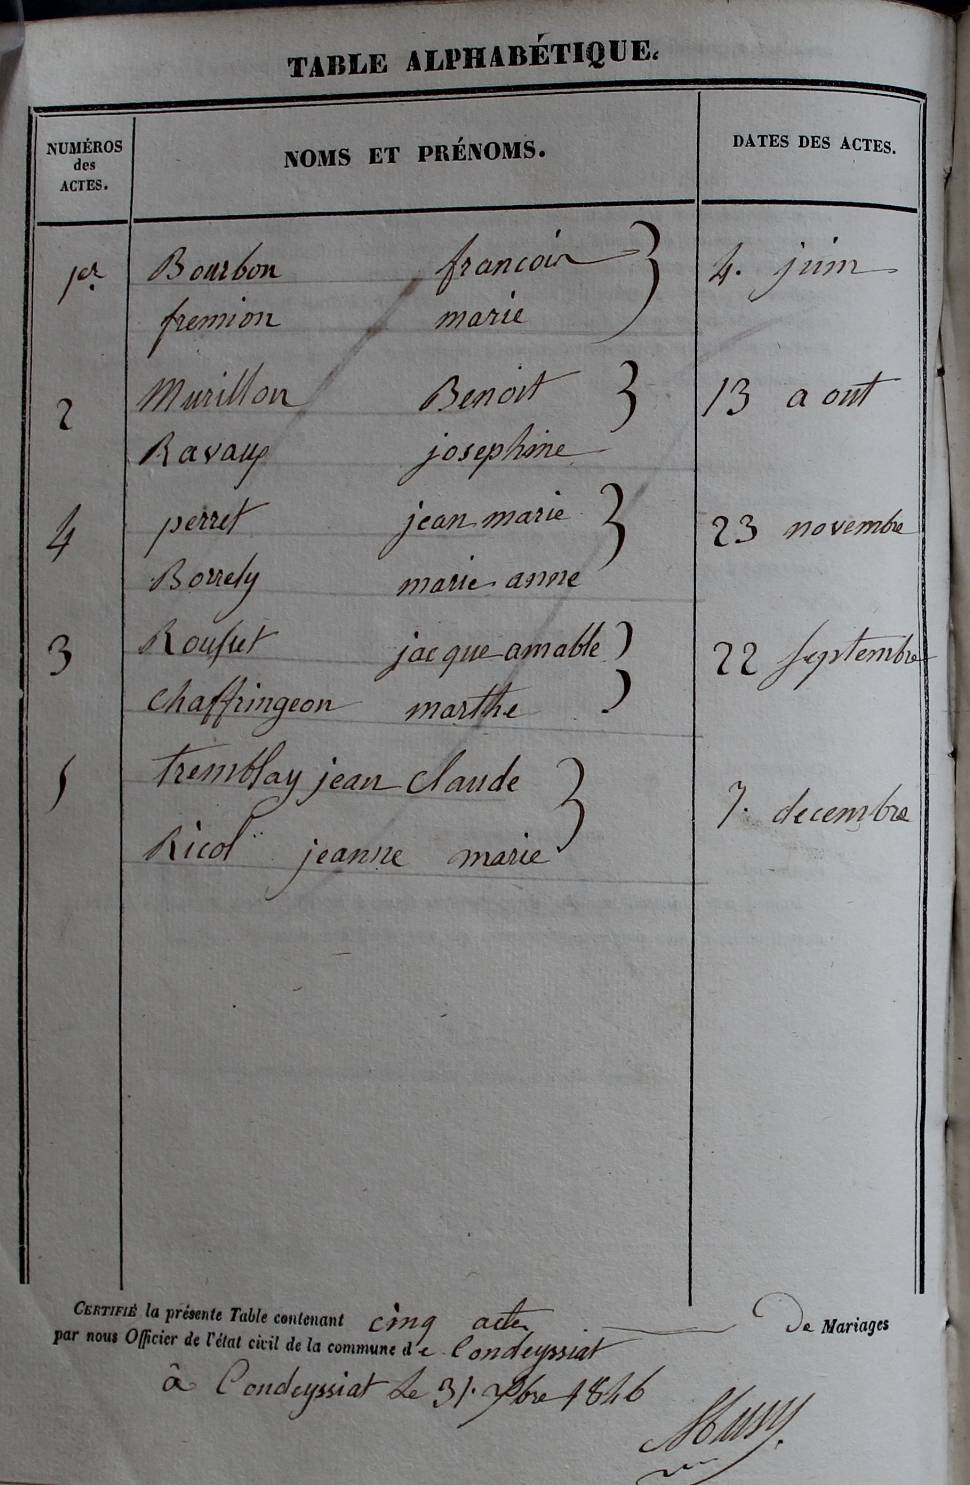 TABLE ALPHABÉTIQUE.
NUMÉROS des ACTES.
NOMS ET PRÉNOMS.
DATES DES ACTES.
1er Bourbon francois 4. juin
fremion marie
2 Murillon Benoit 13 aout
Ravaux josephine
4 perret jean marie 23 novembre
Borrely marie anne
3 Rousset jacque amable 22 septembre
chaffringeon marthe
5 tremblay jean claude 7. decembre
Ricol jeanne marie
CERTIFIÉ la présente Table contenant cinq actes De Mariages
par nous Officier de l'état civil de la commune de Condeyssiat
à Condeyssiat le 31. xbre 1846